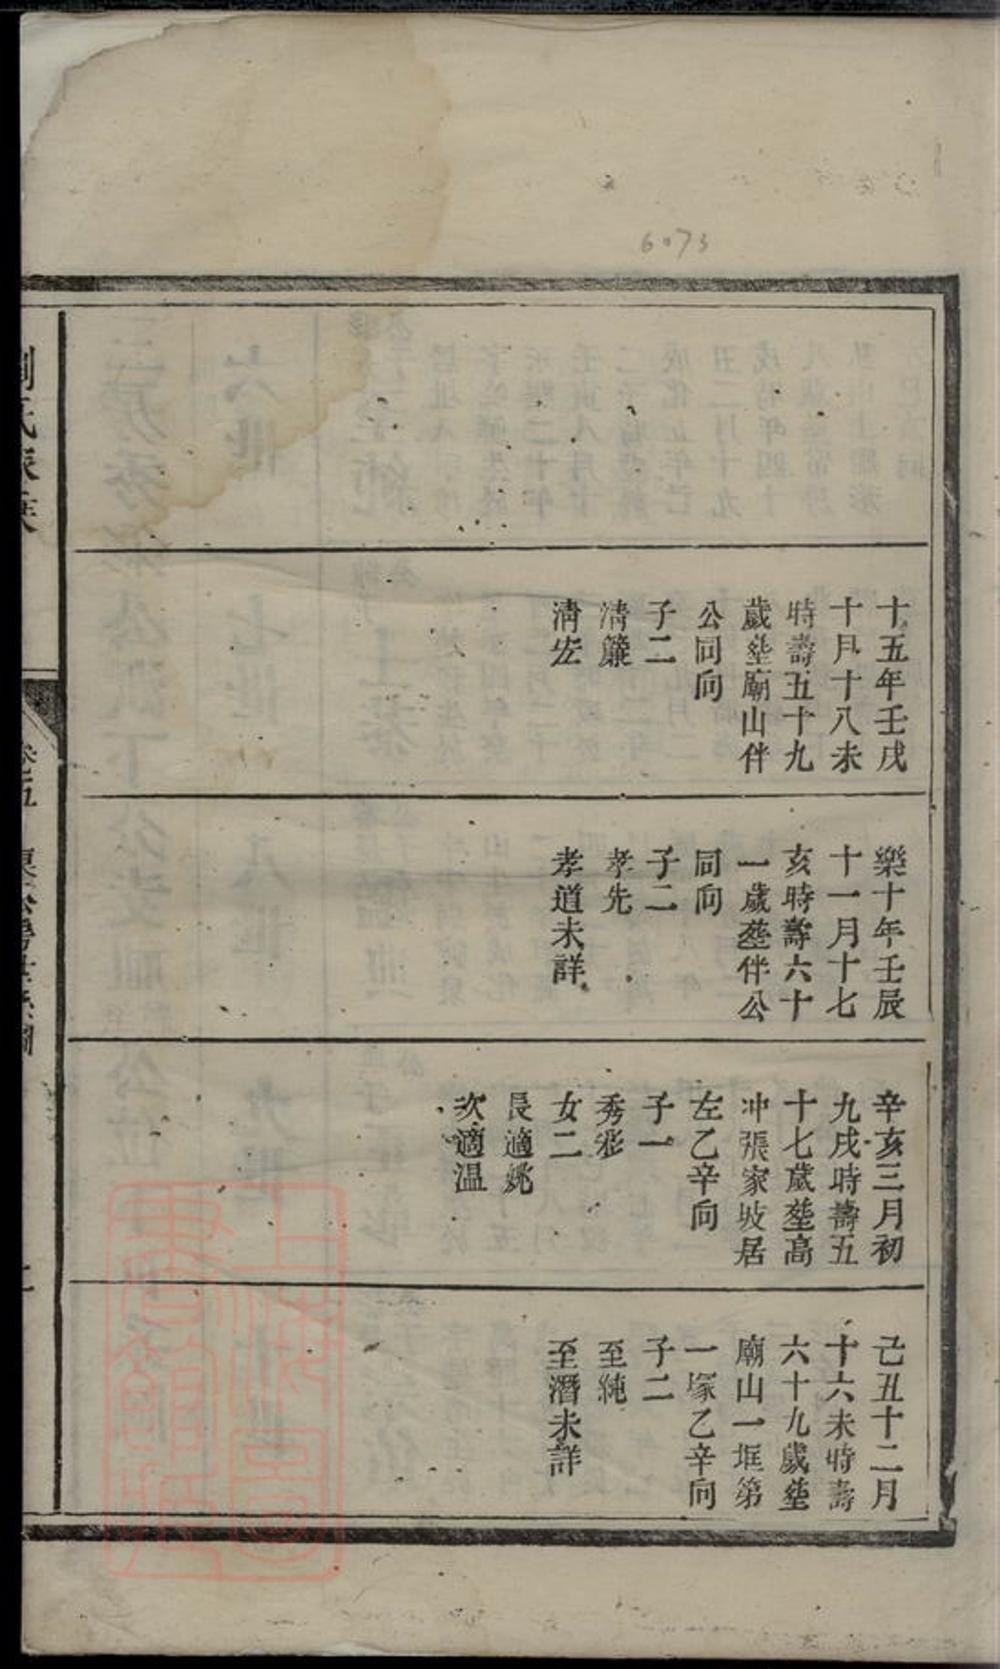 6073
十五年壬戌
十月十八未
時壽五十九
歲塟廟山伴
公同向
子二
淸簾
淸宏
樂十年壬辰
十一月十七
亥時壽六十
一歲塟伴公
同向
子二
孝先
孝道未詳
辛亥三月初
九戌時壽五
十七歲塟高
冲張家坡居
左乙辛向
子一
秀彩
女二
長適姚
次適溫
己丑十二月
十六未時壽
六十九歲塟
廟山一堆第
一塚乙辛向
子二
至純
至潛未詳
劉氏族譜
卷五
上海圖書館藏